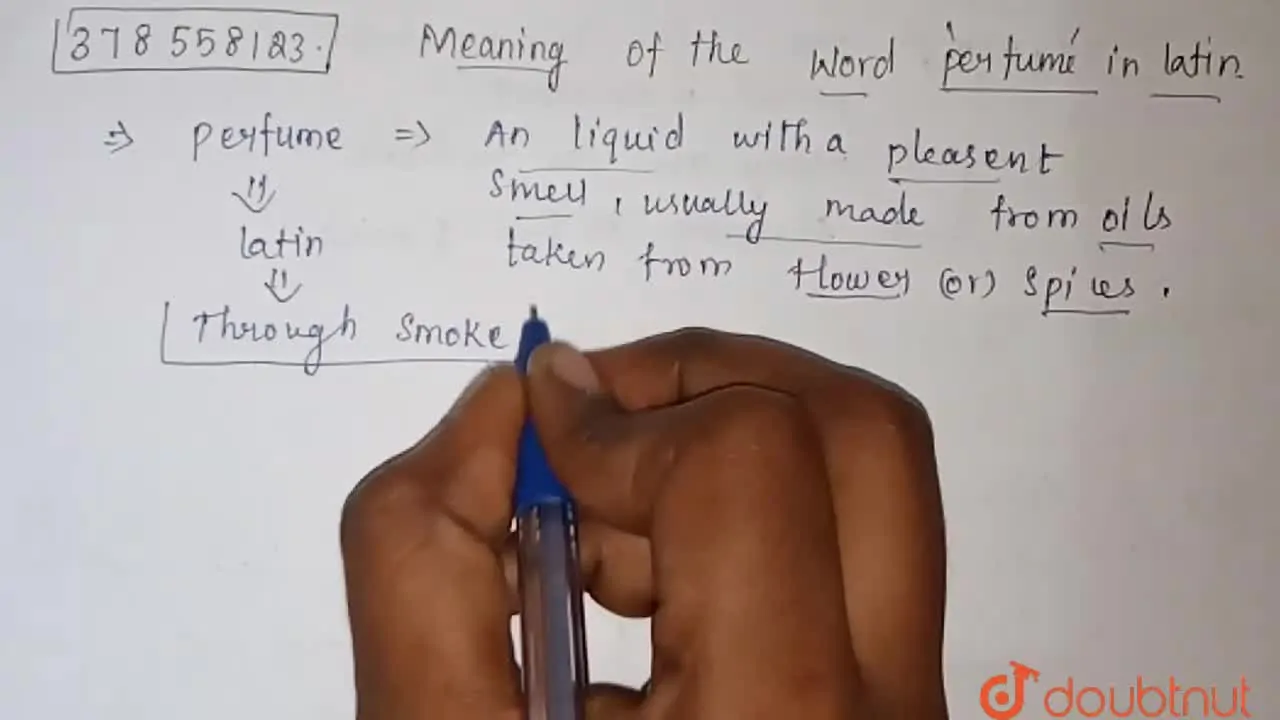 378558123. Meaning of the word 'perfume' in latin.
=> perfume => An liquid with a pleasent
smell, usually made from oils
latin taken from flower (or) spices.
Through smoke
doubtnut